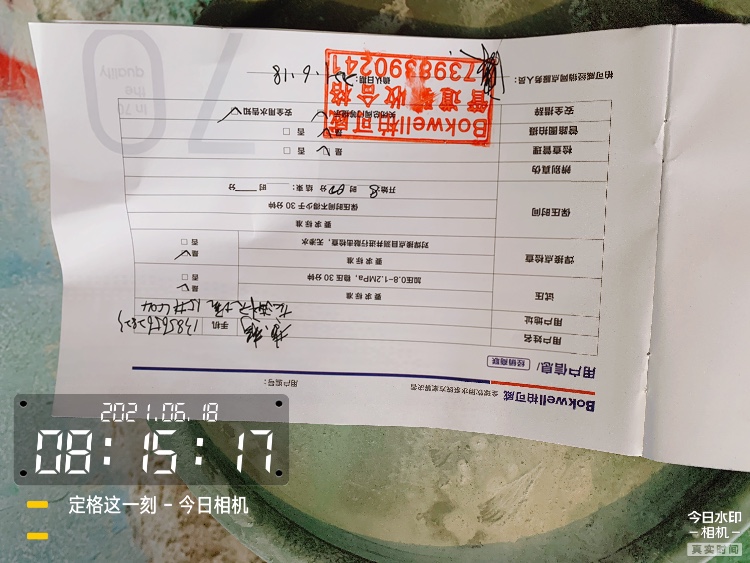 Bokwell柏可威 全球饮用水系统方案解决者
用户编号：
用户信息/ 经销商联
用户姓名
手机
用户地址
试压
要求标准
加压0.8-1.2MPa，稳压30分钟
是
否 □
焊接点检查
要求标准
对焊接点目测并进行敲击检查，无渗水
是
否 □
保压时间
要求标准
保压时间不得少于30分钟
开始: 8 时 00 分 结束: 时 分
辨别真伪
检查管理
是
否 □
管路图拍摄
是
否 □
安全措辞
关闭总阀门等提示
安全用水告知
柏可威经销网点服务人员：
确认日期：
21.6.18
Bokwell柏可威
管道验收合格
17398390241
70
In 70
the
quality
2021.06.18
08:15:17
定格这一刻 - 今日相机
今日水印
- 相机 -
真实时间